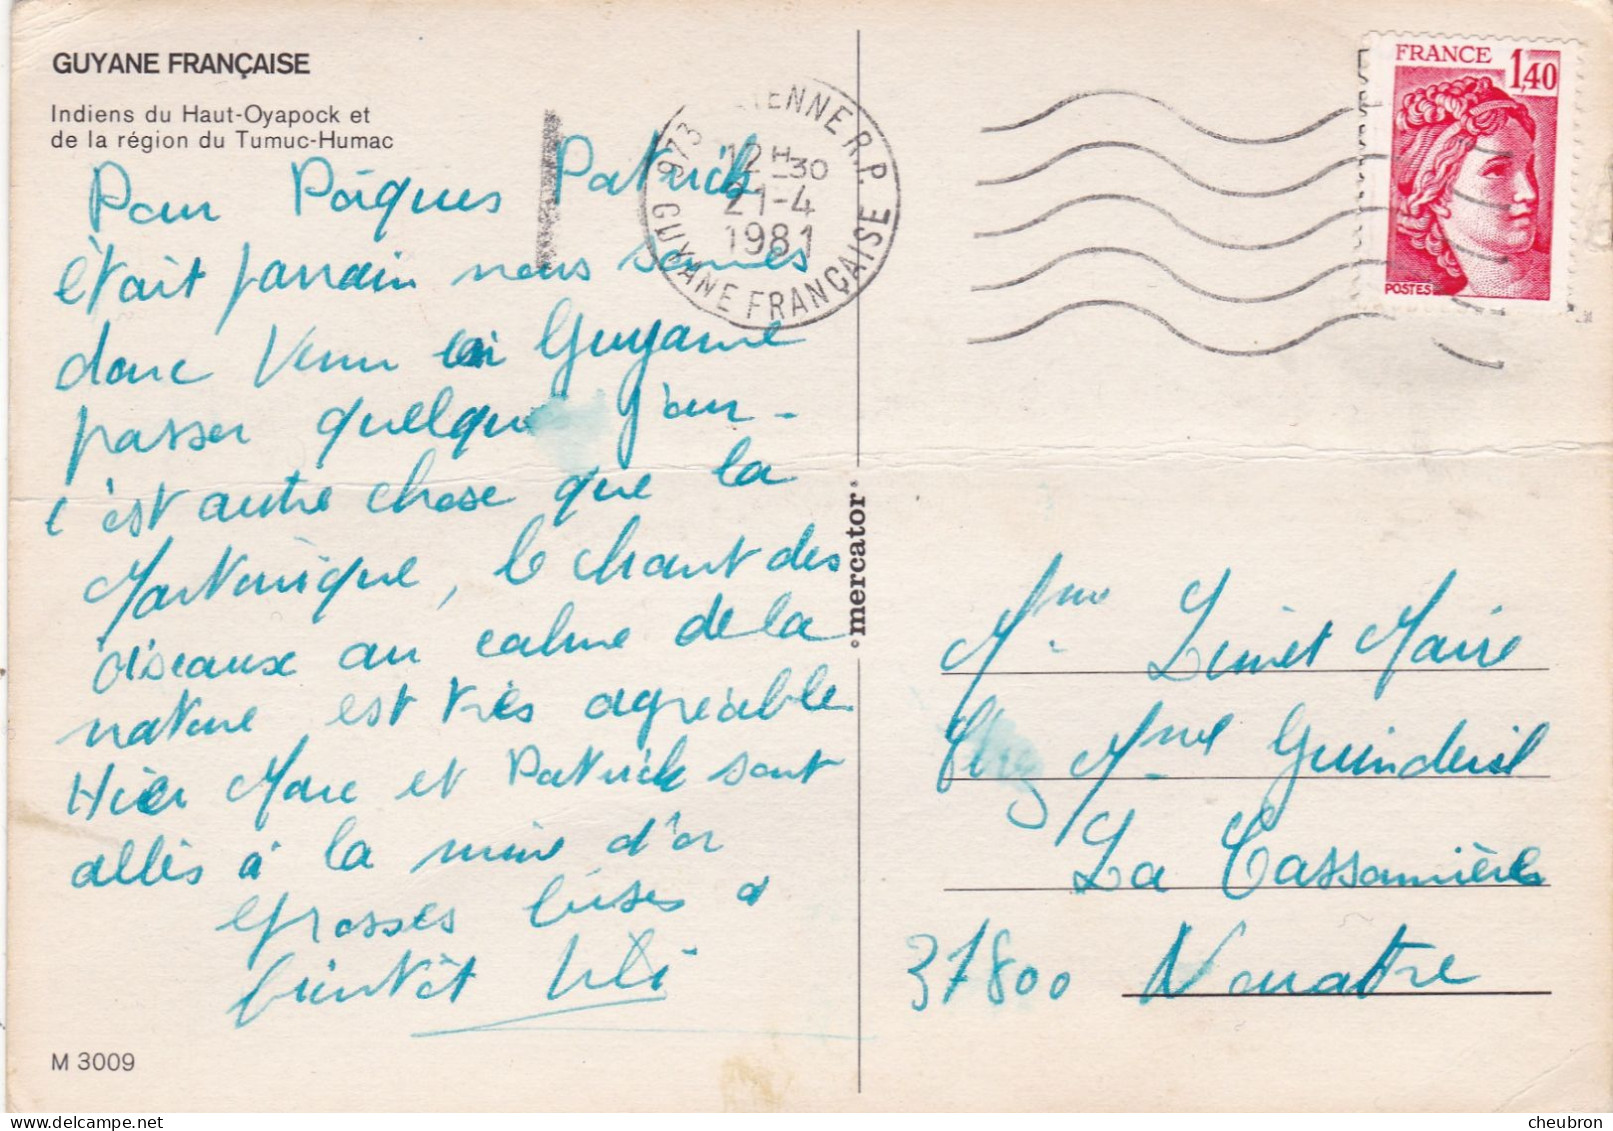 GUYANE FRANÇAISE
Indiens du Haut-Oyapock et
de la région du Tumuc-Humac
Pour Pâques Patrick
était parrain nous sommes
donc venu en Guyane
passer quelques jours -
c'est autre chose que la
Martinique, le chant des
oiseaux au calme de la
nature est très agréable
Hier Marc et Patrick sont
allés à la mine d'or
grosses bises à
bientôt
M 3009
°mercator°
973 ENNE R.P.
12H30
21-4
1981
GUYANE FRANÇAISE
FRANCE 1,40
POSTES
Mme Marie
chez Mme
La
37800 Nouatre
cheubron